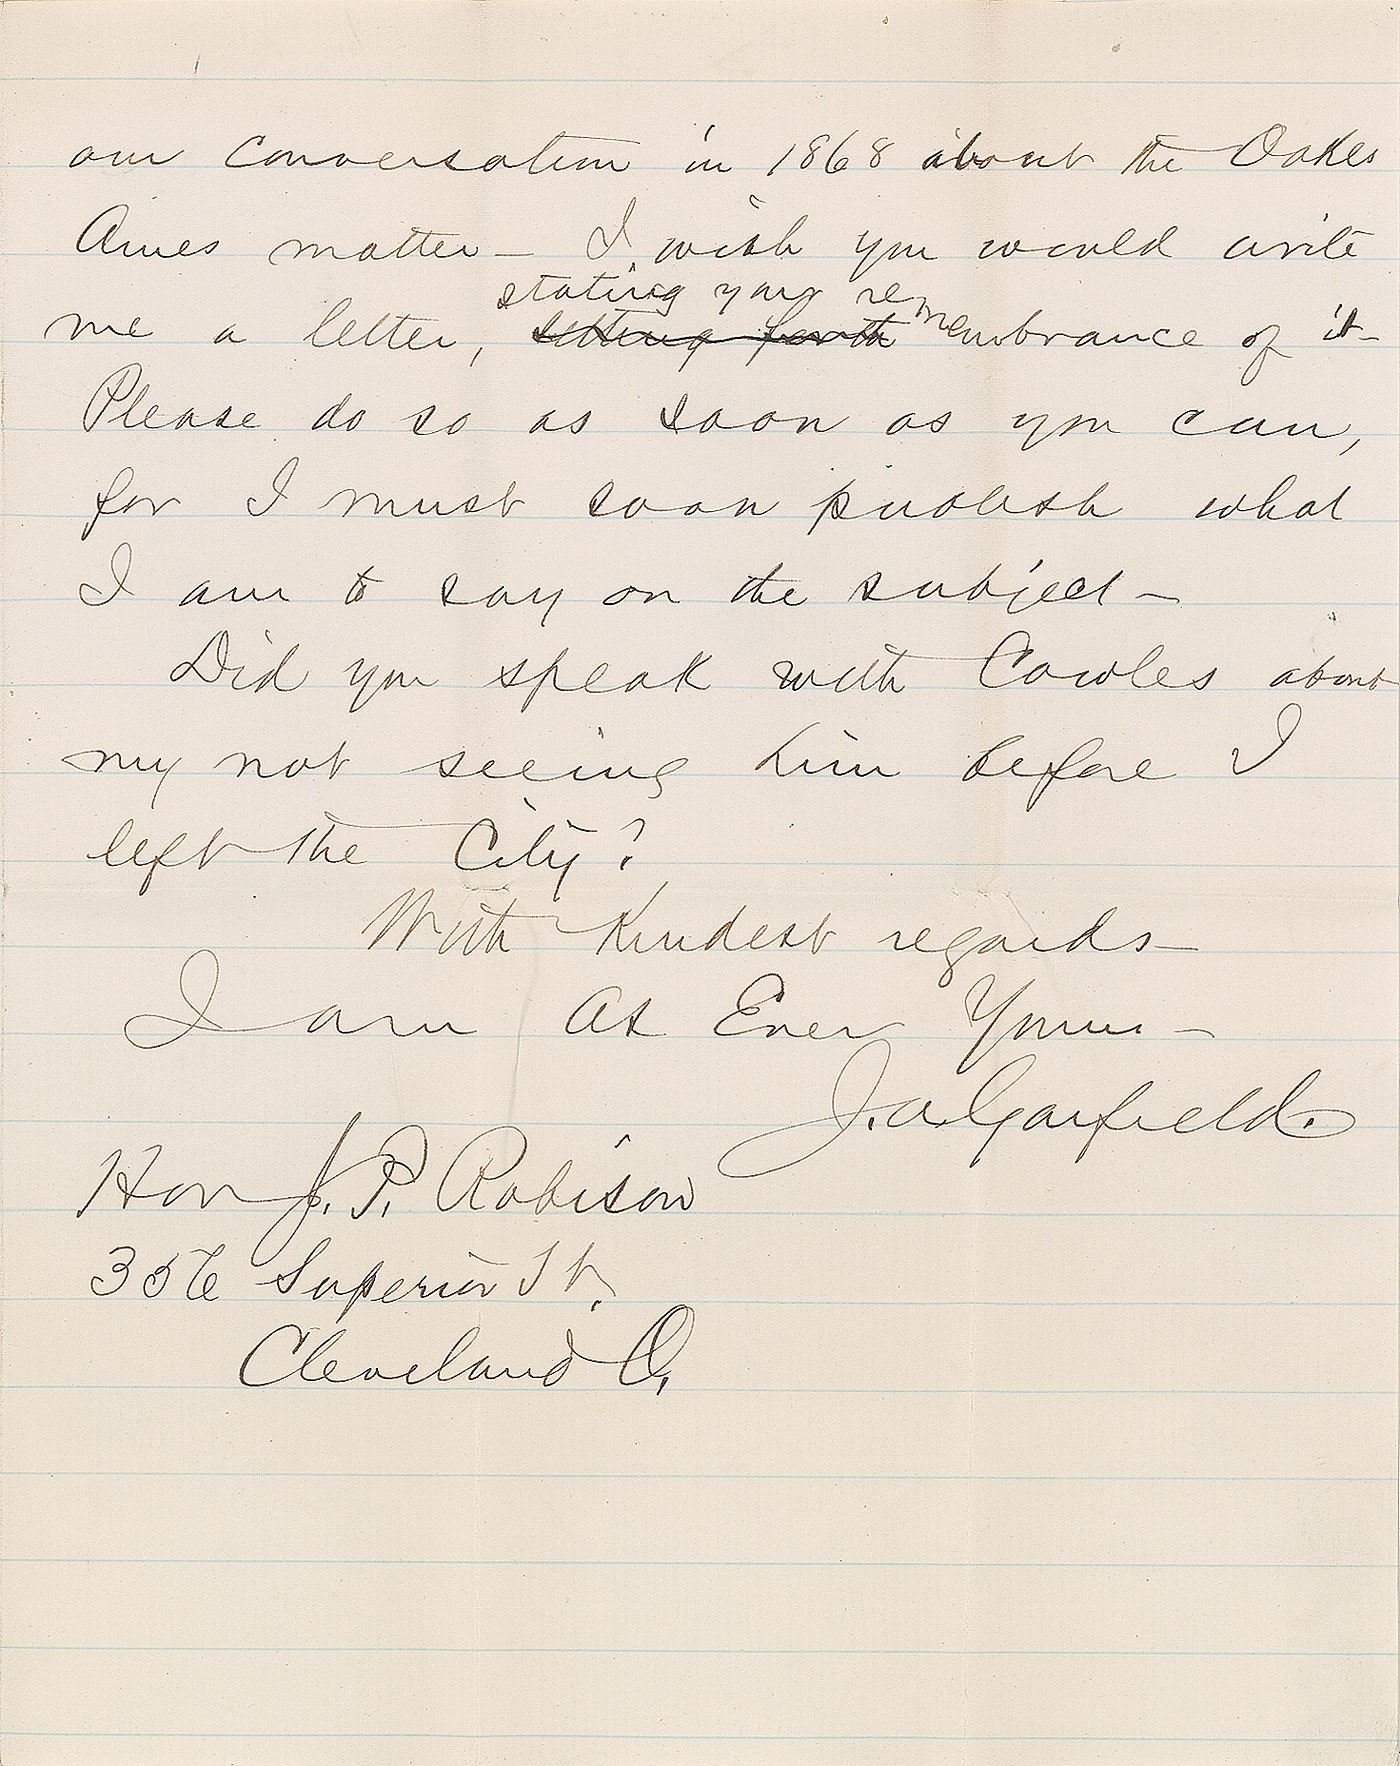 our conversation in 1868 about the Oakes
Ames matter – I wish you would write
stating your re
me a letter, setting forth membrance of it –
Please do so as soon as you can,
for I must soon publish what
I am to say on the subject –
Did you speak with Cowles about
my not seeing him before I
left the City?
With Kindest regards –
I am As Ever Yours –
J. A. Garfield.
Hon J. P. Robison
356 Superior St.
Cleveland O.